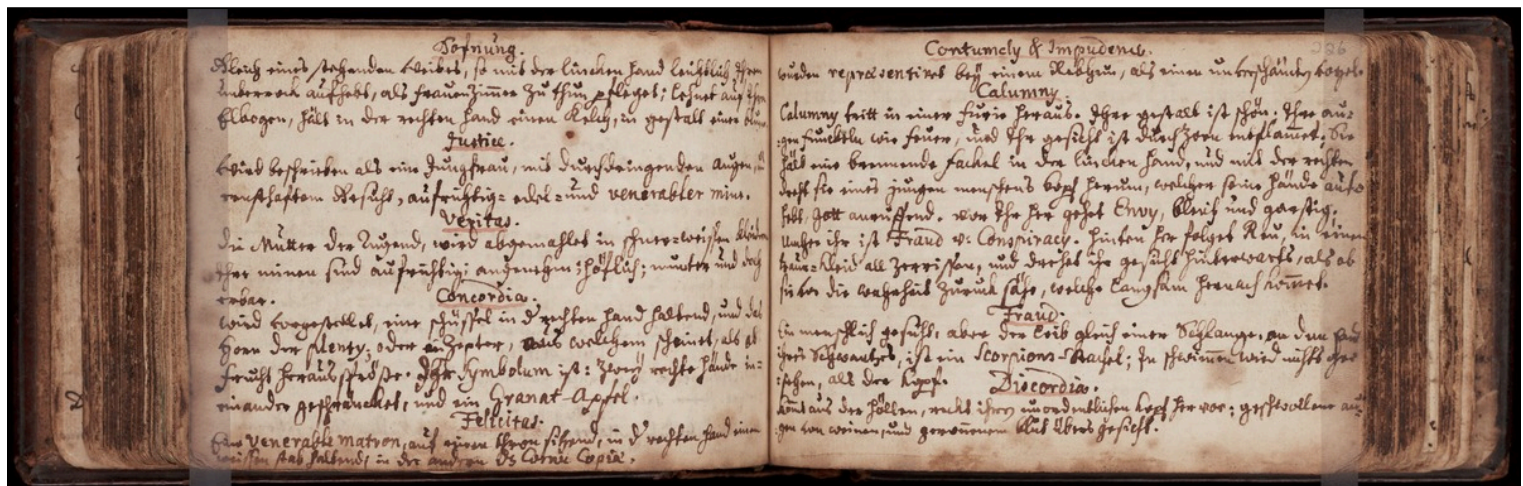 Hofnung.
Gleich eines stehenden Weibes, so mit der lincken hand leichtlich Ihren
Unterrock aufhebt, als Frauenzimmer zu thun pfleget; Lehnet auf Ihrem
Elbogen, hält in der rechten hand einen Kelch, in gestalt einer Blum
Justice.
Wird beschrieben als eine Jungfrau, mit durchdringenden augen,
ernsthaftem Gesicht, aufrichtig= edel= und venerabler mine.
Veritas.
Die Mutter der Tugend, wird abgemahlet in schnee-weissen kleidern
Ihre minen sind aufrichtig; angenehm; höflich; munter und doch
erbar.
Concordia.
Wird vorgestellet, eine schüssel in d' rechten hand haltend, und das
Horn der Plenty; oder ein Zepter, aus welchem scheinet, als ob
frucht herausspröße. Ihr Symbolum ist: zwey rechte hände in=
einander geschräncket, und ein Granat-Apfel.
Felicitas.
Eine venerable matron, auf einem thron sitzend, in d' rechten hand einen
weissen stab haltend, in der andern ds Cornu Copiæ.
Contumely & Impudence.
226
wurden repræsentiret bey einem Rebhun, als einen unverschämten vogel.
Calumny.
Calumny tritt in einer furie heraus. Ihre gestalt ist schön: Ihre au=
gen funckeln wie feuer, und Ihr gesicht ist durch zorn entflammet; Sie
hält eine brennende fackel in der lincken hand, und mit der rechten
dreht sie eines jungen menschens kopf herum, welcher seine hände auf=
hebt, Gott anruffend. vor Ihr her gehet Envy, bleich und garstig.
Umher ihr ist Fraud u: Conspiracy. hinten her folget Reu, in einem
trauer-kleid all zerrissen, und drehet ihr gesicht hinterwarts, als ob
sie vor die wahrheit zurück sähe, welche langsam hernach kommet.
Fraud.
Ein menschlich gesicht, aber der leib gleich einer Schlange, an dem end
ihres Schwantzes, ist ein Scorpions-Stachel; In schwimmen wird nichts ge=
sehen, als der Kopf.
Discordia.
komt aus der höllen, reckt ihren unordentlichen kopf hervor; geschwollene au=
gen von weinen, und geronnenem blut übers gesicht.